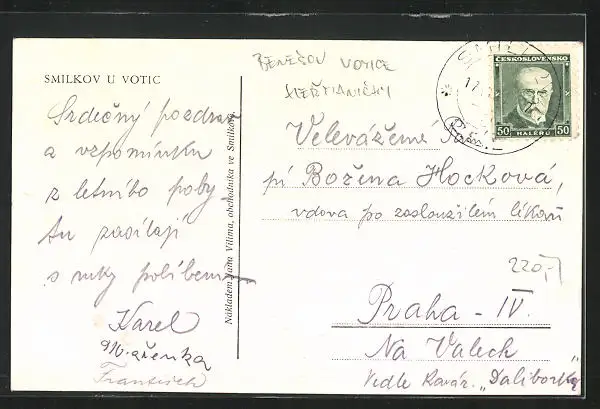 SMILKOV U VOTIC
Srdečný pozdrav
a vzpomínku
z letního poby-
tu zasílají
s ruky políbením
Karel
Mařenka
František
Nákladem Jana Vilíma, obchodníka ve Smilkově.
BENEŠOV VOTICE
HEŘMANIČKY
ČESKOSLOVENSKO
50 HALÉŘŮ 50
Velevážená P.
pí Božena Hocková,
vdova po zasloužilém lékaři
220,-
Praha - IV.
Na Valech
Vedle kavár. „Daliborky"